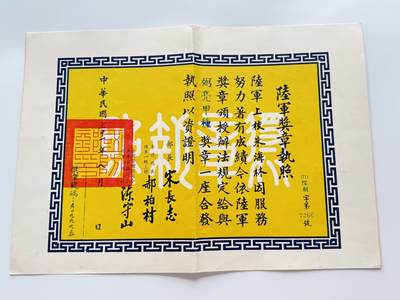 陸軍獎章執照
字第7266號
陸軍上校朱林因服務
努力著有成績今依陸軍
獎章頒授辦法規定給與
弼亮甲種獎章一座合發
執照以資證明
宋長志
郝柏村
陳守山
中華民國
月
日